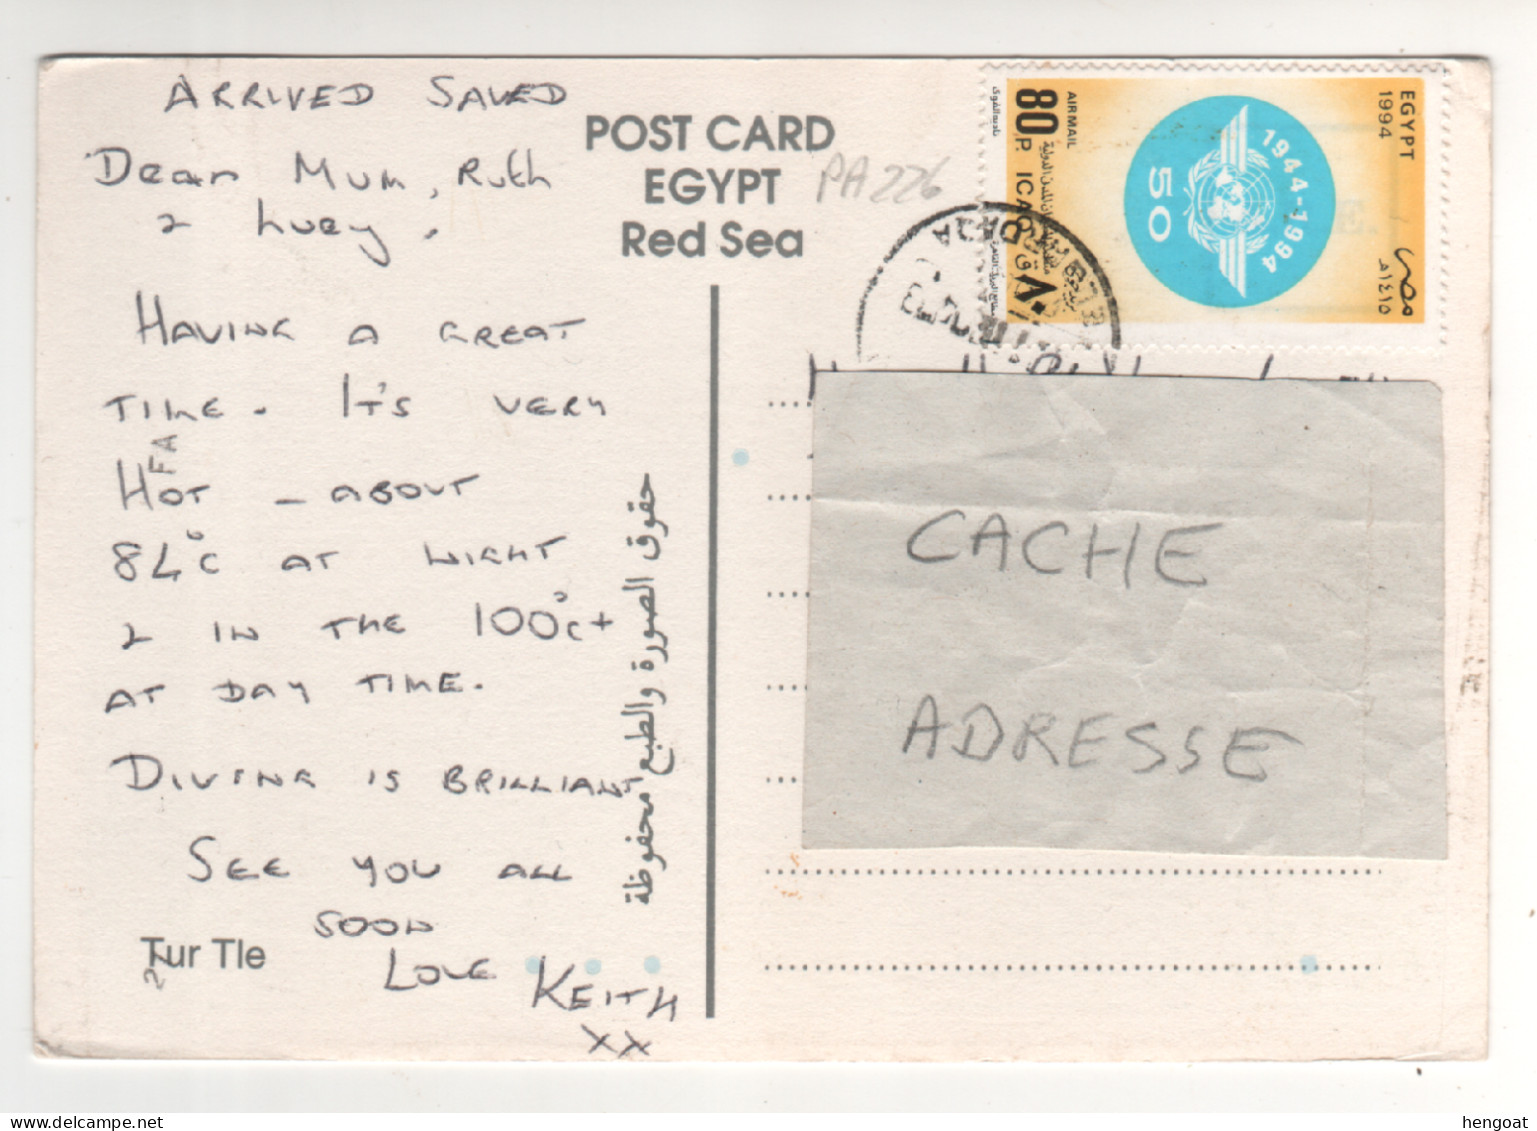 ARRIVED SAVED
Dear Mum, Ruth
& Lucy,
HAVING A GREAT
TIME. IT'S VERY
HOT – ABOUT
84°C AT NIGHT
& IN THE 100°C+
AT DAY TIME.
DIVING IS BRILLIANT
SEE YOU ALL
SOON
LOVE KEITH
XX
Tur Tle
FA
POST CARD
EGYPT
Red Sea
PA226
حقوق الصورة والطبع محفوظة
EGYPT
1994
مصر
١٤١٥هـ
1944-1994
50
AIRMAIL
80 P.
ICAO
CACHE
ADRESSE
hengoat